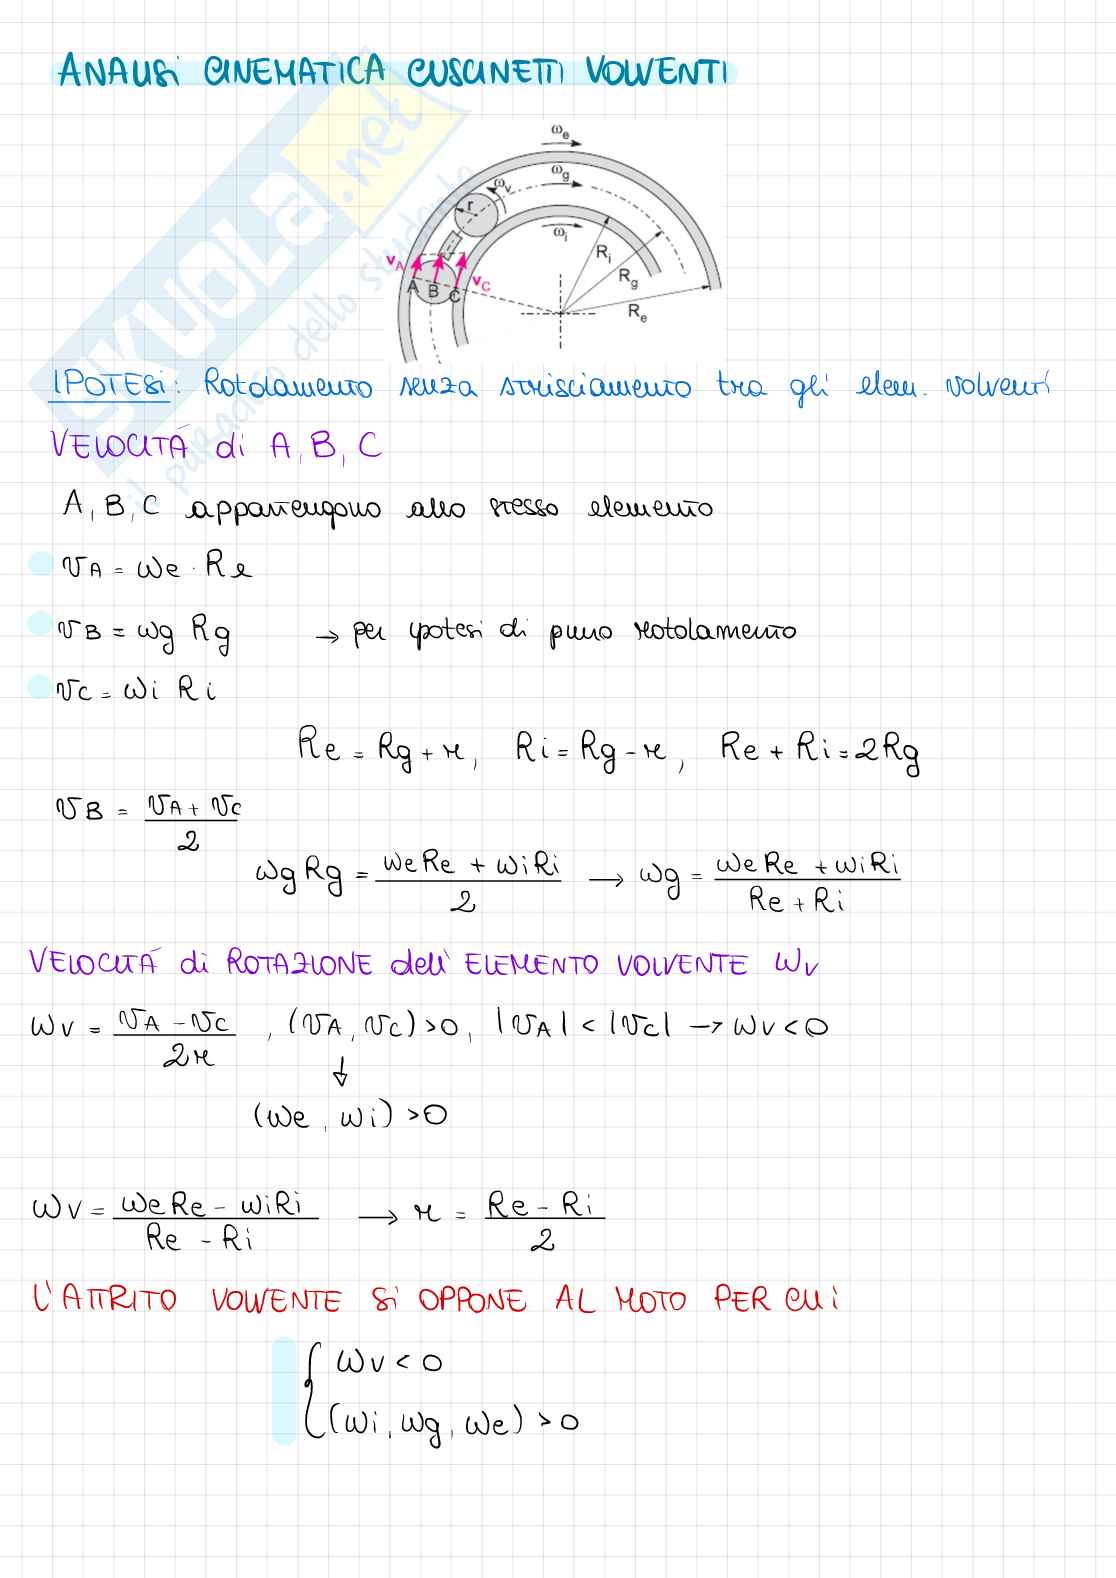 ANALISI CINEMATICA CUSCINETTI VOLVENTI
ωe
ωg
ωv
r
ωi
Ri
vA
A B C
vC
Rg
Re
SKUOLA.net
il paradiso dello studente
IPOTESI: Rotolamento senza strisciamento tra gli elem. volventi
VELOCITÁ di A, B, C
A, B, C appartengono allo stesso elemento
vA = ωe · Re
vB = ωg Rg → per ipotesi di puro rotolamento
vC = ωi Ri
Re = Rg + r, Ri = Rg - r, Re + Ri = 2Rg
vB = (vA + vC)/2
ωg Rg = (ωeRe + ωiRi)/2 → ωg = (ωeRe + ωiRi)/(Re + Ri)
VELOCITÁ di ROTAZIONE dell' ELEMENTO VOLVENTE ωv
ωv = (vA - vC)/2r , (vA, vC) > 0, |vA| < |vC| → ωv < 0
↓
(ωe, ωi) > 0
ωv = (ωeRe - ωiRi)/(Re - Ri) → r = (Re - Ri)/2
L'ATTRITO VOLVENTE SI OPPONE AL MOTO PER CUI
{ ωv < 0
(ωi, ωg, ωe) > 0